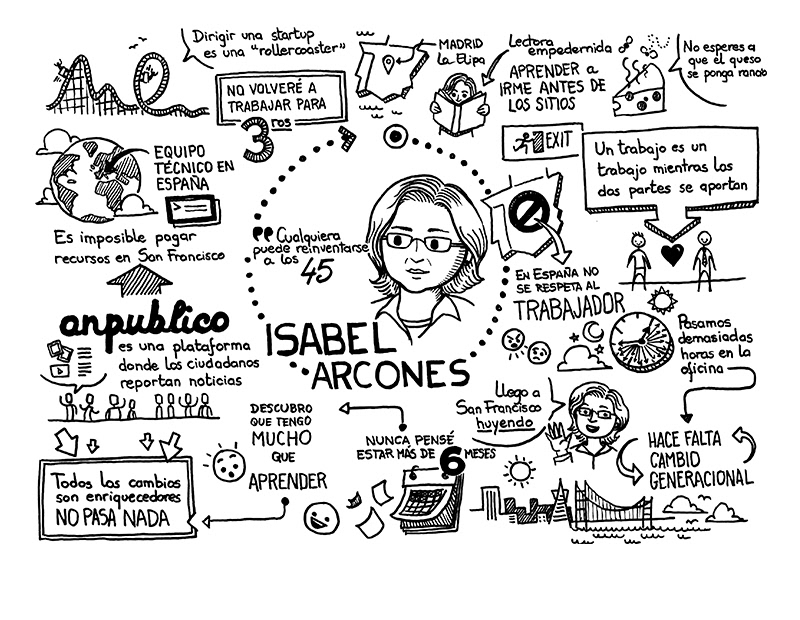 Dirigir una startup
es una "rollercoaster"
MADRID
La Elipa
Lectora
empedernida
APRENDER a
IRME ANTES DE
LOS SITIOS
No esperes a
que el queso
se ponga rancio
NO VOLVERÉ A
TRABAJAR PARA
3ros
EXIT
Un trabajo es un
trabajo mientras las
dos partes se aportan
EQUIPO
TÉCNICO EN
ESPAÑA
Es imposible pagar
recursos en San Francisco
Cualquiera
puede reinventarse
a los
45
EN ESPAÑA NO
SE RESPETA AL
TRABAJADOR
Pasamos
demasiadas
horas en la
oficina
anpublico
es una plataforma
donde los ciudadanos
reportan noticias
ISABEL
ARCONES
Llego a
San Francisco
huyendo
HACE FALTA
CAMBIO
GENERACIONAL
NUNCA PENSÉ
ESTAR MÁS DE 6 MESES
DESCUBRO
QUE TENGO
MUCHO
QUE
APRENDER
Todos los cambios
son enriquecedores
NO PASA NADA